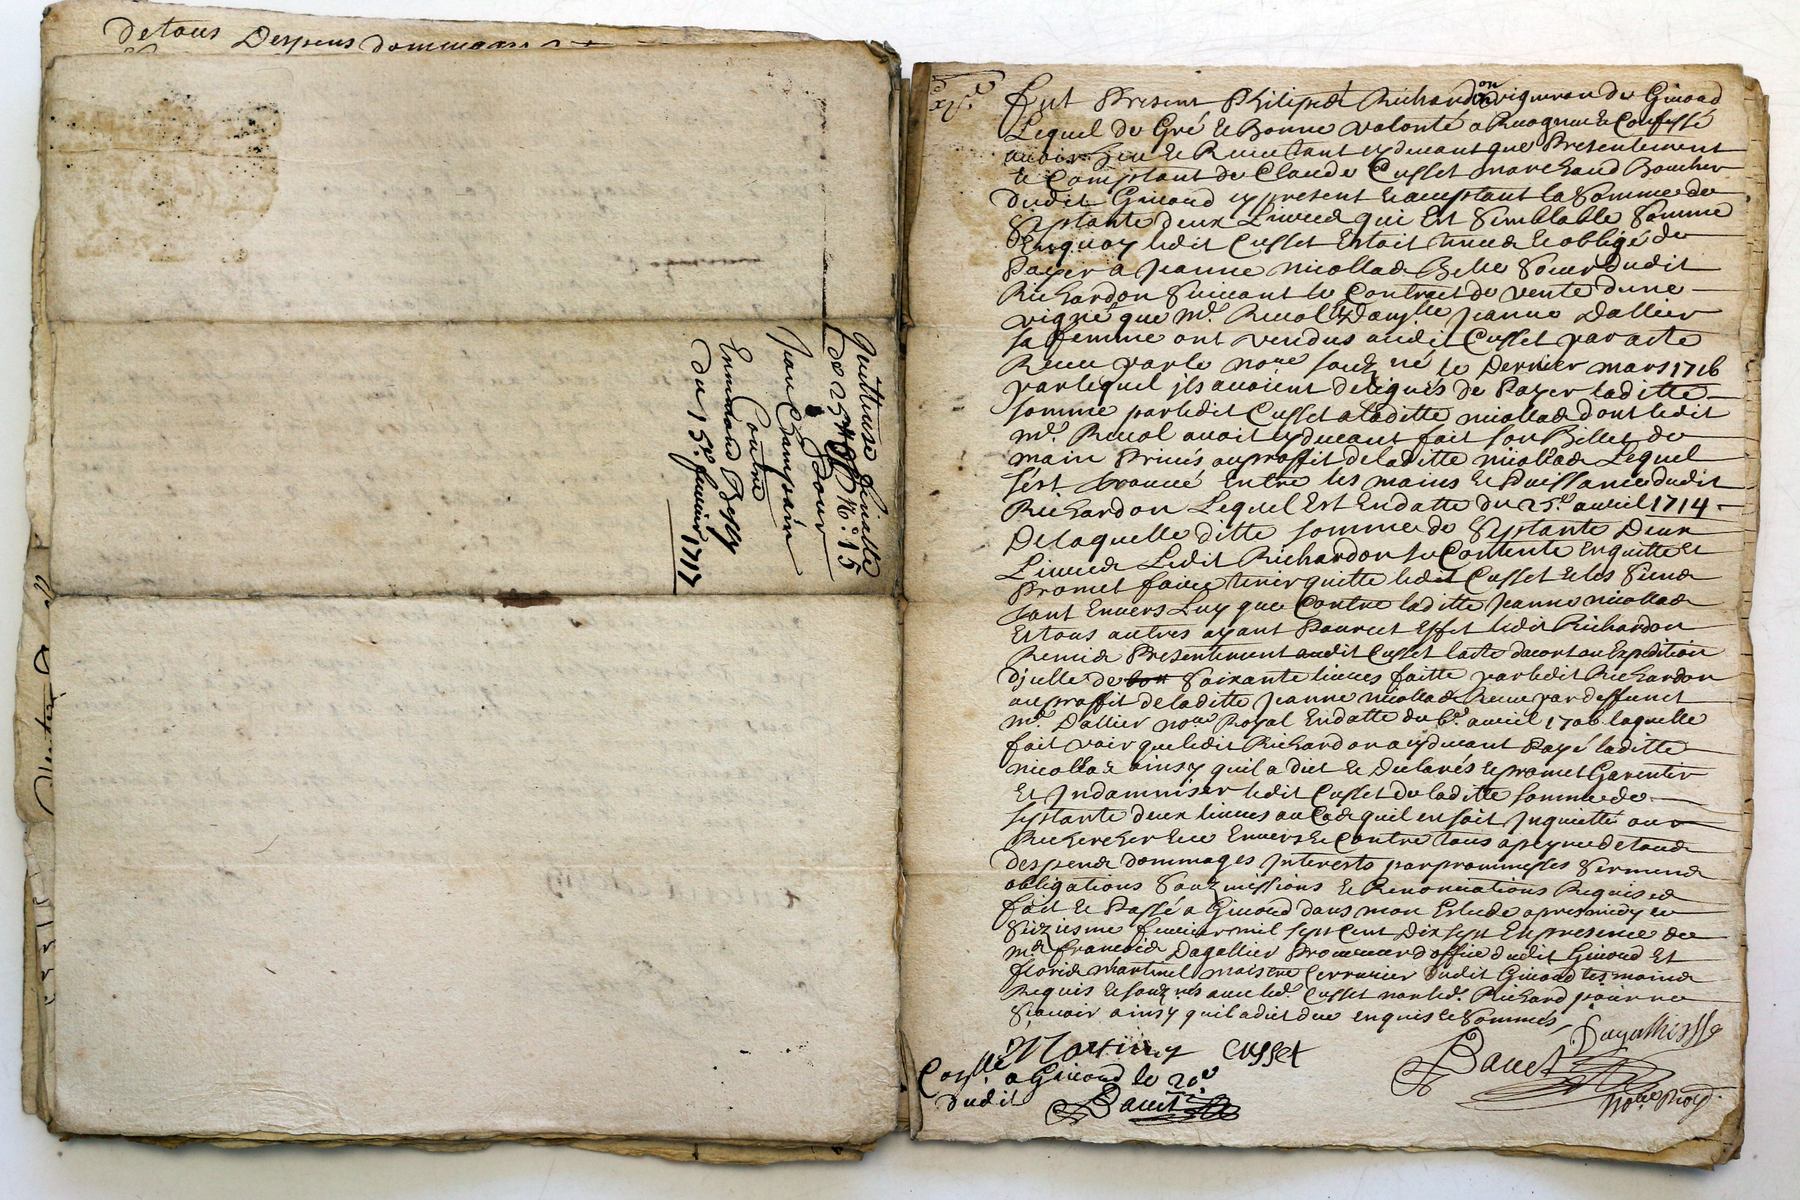 de tous Despens dommages
quittance finalle
de 25# 10s N.° 15
Pour
Jean Champsin
Contre
Ennemond Bessy
du 15.e feurier 1717
fut Present Philipe Richardon vigneron de Giuord
Lequel de Gré et Bonne volonté a Recogneu et Confessé
auoir Heu et Receu tant cy deuant que Presentement
et Comptant de Claude Cusset marchand Boucher
dudit Giuord cy present et acceptant la Somme de
Septante deux Liures qui Est Semblable Somme
Enquoy ledit Cusset Estoit tenu et obligé de
Payer a Jeanne nicollas Belle Soeur dudit
Richardon Suiuant le Contract de vente dune
vigne que m.e Reuol et dam.lle Jeanne Dallier
sa femme ont vendus audit Cusset par acte
Receu par le no.re souz.né le Dernier mars 1716
par lequel jls auoient delegués de Payer laditte
somme par ledit Cusset a laditte nicollas dont ledit
m.e Reuol auoit cy deuant fait son Billet de
main Priués au proffit de laditte nicollas Lequel
sest trouué Entre les mains et Puissance dudit
Richardon Lequel Est En datte du 25.e auril 1714
De laquelle ditte somme de Septante Deux
Liures Ledit Richardon se Contente En quitte Et
Promet faire tenir quitte ledit Cusset et les Siens
tant Enuers Luy que Contre laditte Jeanne nicollas
Et tous autres ayant Pour cet Effet ledit Richardon
Remis Presentement audit Cusset lacte dacort ou Expedition
djcelle de Soixante liures faitte par ledit Richardon
au proffit de laditte Jeanne nicollas Receu par deffunct
m.e Dallier no.re Royal En datte du 6.e auril 1706 laquelle
fait voir que ledit Richardon a cy deuant Payé laditte
nicollas ainsy quil a dict et Declarés et promet Garentir
Et Jndamniser ledit Cusset de laditte somme de
septante deux liures au Cas quil en soit Jnquietté ou
Recherché Enuers et Contre tous a peyne de tous
despens dommages Jnterests par prommesses Serment
obligations Souzmissions et Renonciations Requises
fait et Passé a Giuord dans mon Estude apres midy le
Seiziesme feurier mil sept Cent Dix sept En presence de
m.e francois Dagallier Procureur doffice dudit Giuord Et
floris martinel maistre Serrurier dudit Giuord tesmoins
Requis et souz.nés auec led. Cusset non led. Richard pour ne
Scauoir ainsy quil a dict de ce enquis et Sommés
Cusset
Dagallier
Bauet
no.re Royal
Con.llé a Giuord le 20.e
dudit Bauet